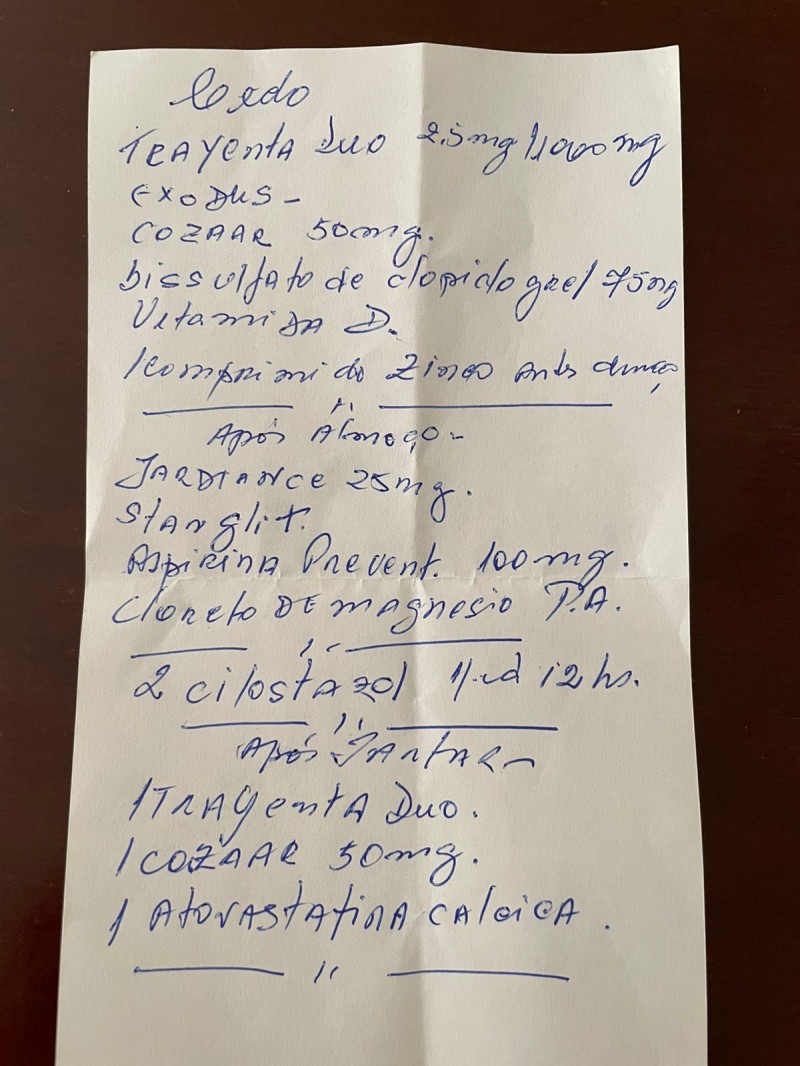 Cedo
TRAYENTA DUO 2,5mg/1000mg
EXODUS -
COZAAR 50mg.
bissulfato de clopidogrel 75mg
Vitamina D.
1 comprimido Zinco antes almoço
Após Almoço -
JARDIANCE 25mg.
Stanglit.
Aspirina Prevent. 100mg.
Cloreto DE magnesio P.A.
2 cilostazol 1/cd 12 hs.
Após JANTAR -
1 TRAYENTA DUO.
1 COZAAR 50mg.
1 Atorvastatina CALCICA.